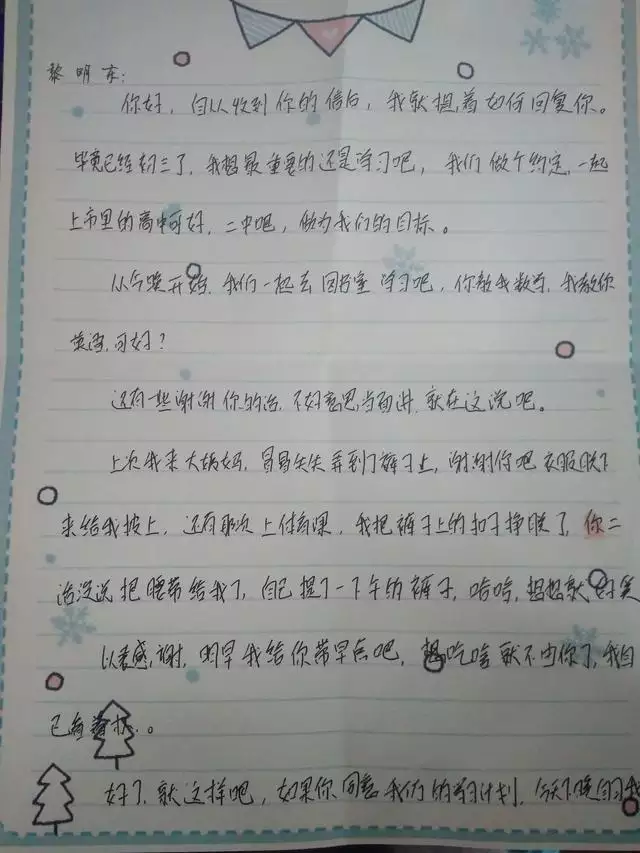 黎明东：
你好，自从收到你的信后，我就想着如何回复你。
毕竟已经初三了，我想最重要的还是学习吧，我们做个约定，一起
上市里的高中可好，二中吧，做为我们的目标。
从今晚开始，我们一起去图书室学习吧，你教我数学，我教你
英语，可好？
还有一些谢谢你的话，不好意思当面讲，就在这说吧。
上次我来大姨妈，冒冒失失弄到了裤子上，谢谢你吧衣服脱下
来给我披上，还有那次上体育课，我把裤子上的扣子挣脱了，你二
话没说把腰带给我了，自己提了一下午的裤子，哈哈，想想就好笑
以表感谢，明早我给你带早点吧，想吃啥就不由你了，我自
己看着
好了，就这样吧，如果你同意我们的学习计划，今天晚自习我